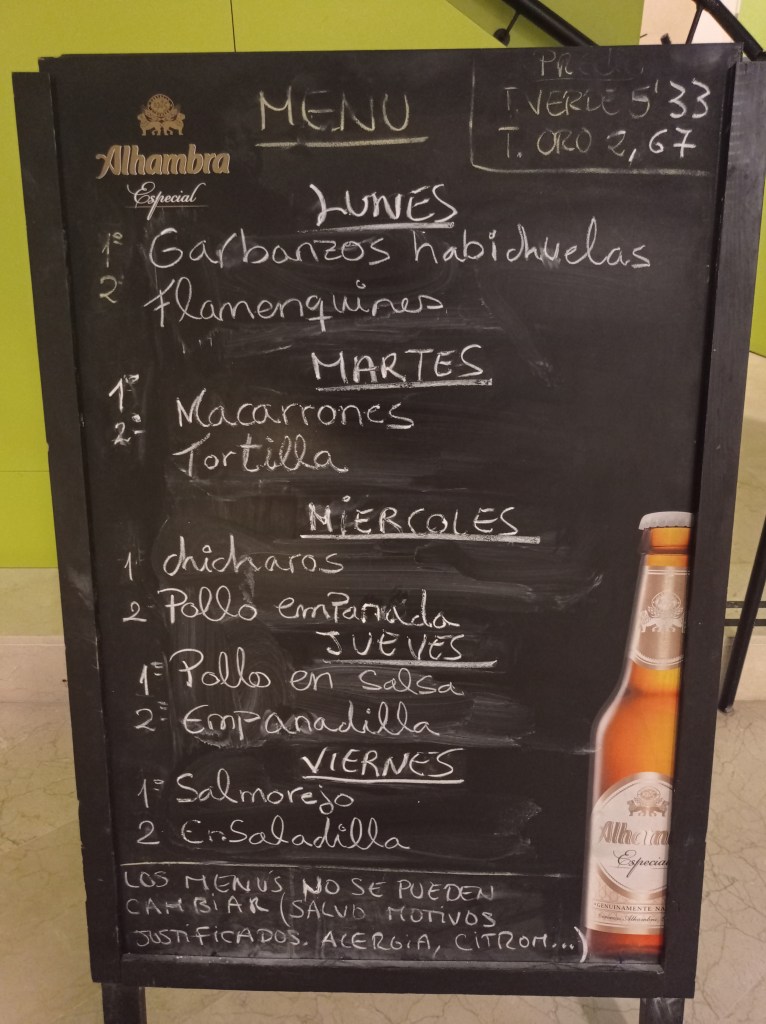 Alhambra
Especial
MENU
T. VERDE 5'33
T. ORO 2,67
LUNES
1º Garbanzos habichuelas
2 Flamenquines
MARTES
1º Macarrones
2º Tortilla
MIERCOLES
1 chicharos
2 Pollo emPanada
JUEVES
1º Pollo en Salsa
2º EmPanadilla
VIERNES
1º Salmorejo
2 EnSaladilla
LOS MENÚS NO SE PUEDEN
CAMBIAR (SALVO MOTIVOS
JUSTIFICADOS. ALERGIA, CITROM...)
Alhambra
Especial
GENUINAMENTE